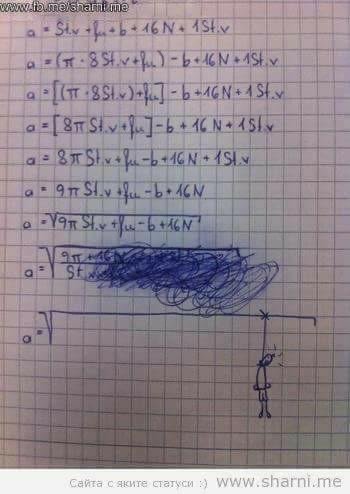 www.fb.me/sharni.me
a = St.v + fμ + b + 16N + 1St.v
a = (π · 8St.v + fμ) - b + 16N + 1St.v
a = [(π · 8St.v) + fμ] - b + 16N + 1St.v
a = [8π St.v + fμ] - b + 16N + 1St.v
a = 8π St.v + fμ - b + 16N + 1St.v
a = 9π St.v + fμ - b + 16N
a = √9π St.v + fμ - b + 16N
a = √9π + 16N
St.v
a = √
Сайта с яките статуси :) www.sharni.me